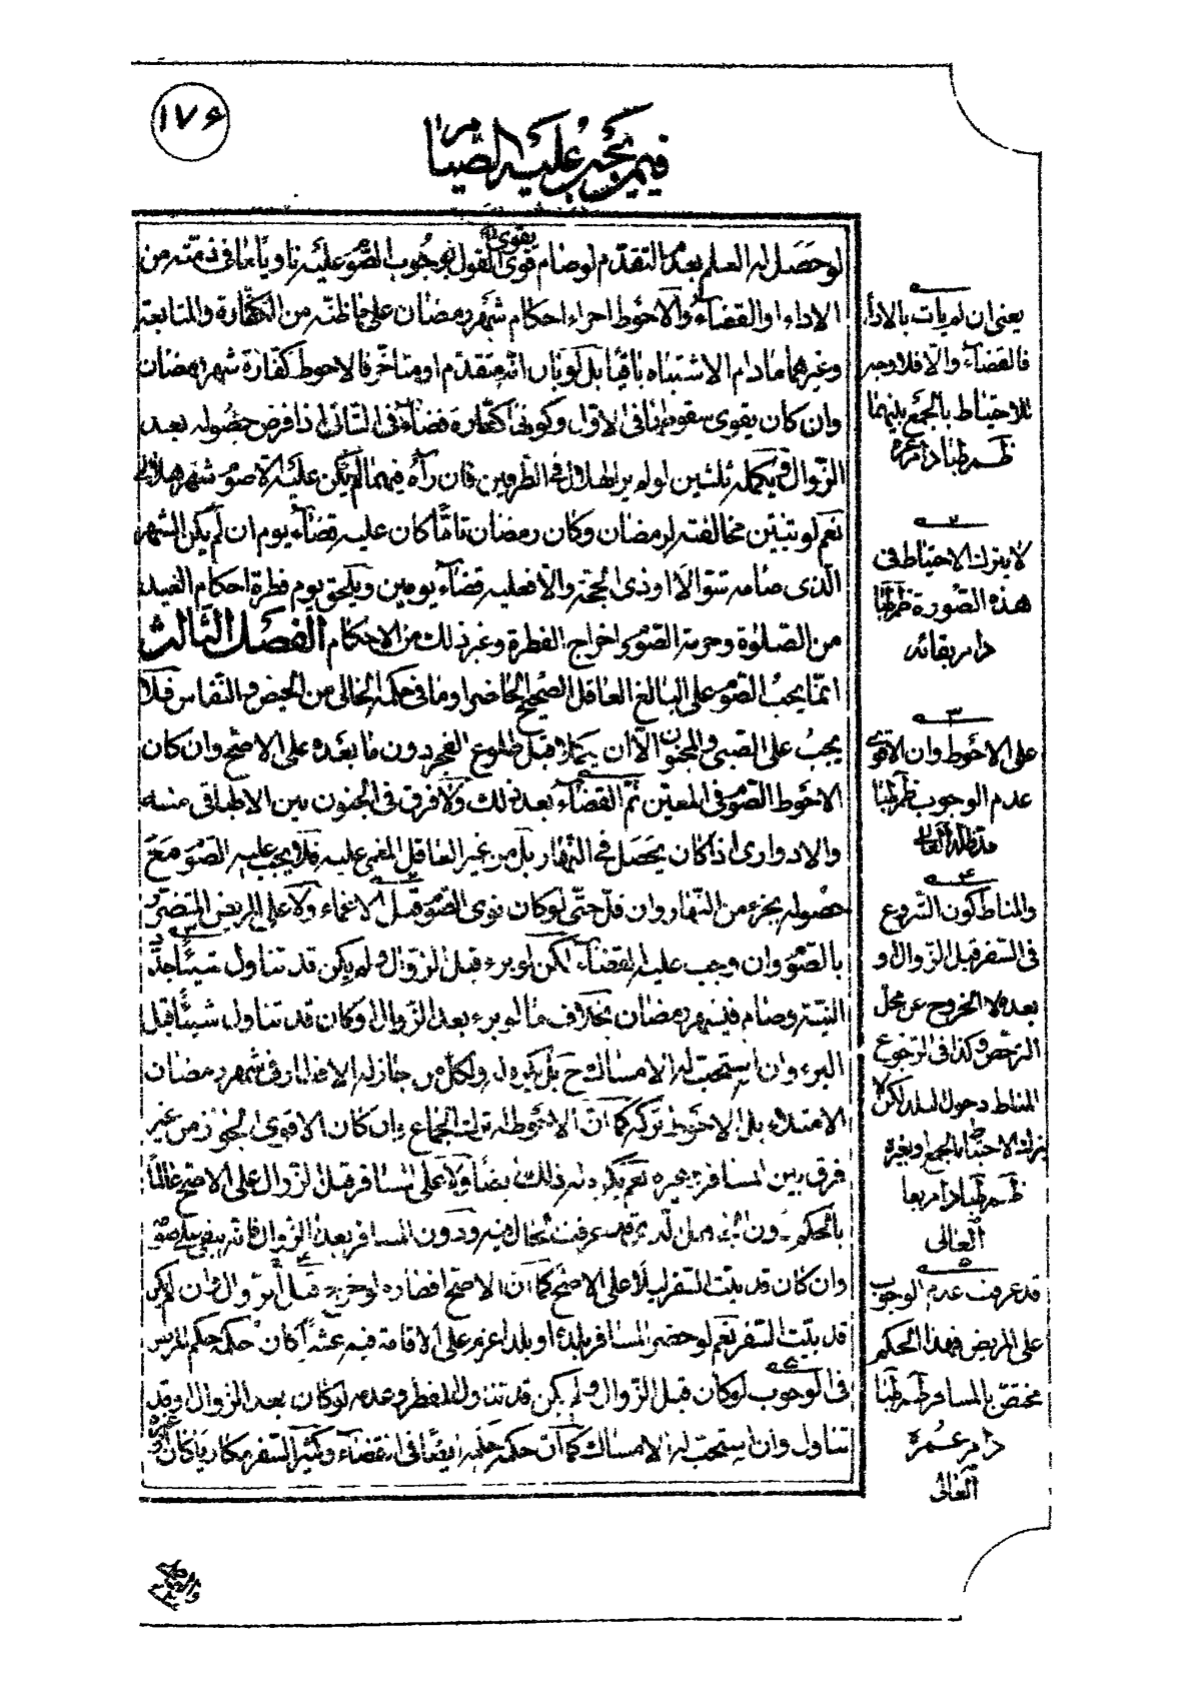 ١٧۶
فيمن يجب عليه الصيام
لو حصل له العلم بعد التقدم لو صام قوى القول بوجوب الصوم عليه ناويا ما فى ذمته من
يقوى
الاداء او القضاء والاحوط اجراء احكام شهر رمضان على ما ظنه من الكفارة والمتابعة
وغيرهما ما دام الاشتباه باقيا بل لو بان انه متقدم او متاخر فالاحوط كفارة شهر رمضان
وان كان يقوى سقوطها فى الاول وكونها كفارة قضاء فى الثانى اذا فرض حصوله بعد
الزوال ويكمله ثلثين لو لم ير الهلال فى الطرفين فان رآه فيهما لم يكن عليه الا صوم شهر هلالى
نعم لو تبين مخالفته لرمضان وكان رمضان تاما كان عليه قضاء يوم ان لم يكن الشهر
الذى صامه شوالا او ذى الحجة والا فعليه قضاء يومين ويلحق يوم فطرة احكام العيد
من الصلوة وحرمة الصوم واخراج الفطرة وغير ذلك من الاحكام الفصل الثالث
انما يجب الصوم على البالغ العاقل الصحيح الحاضر او ما فى حكمه الخالى من الحيض والنفاس فلا
يجب على الصبى والمجنون الا ان يكملا قبل طلوع الفجر دون ما بعده على الاصح وان كان
الاحوط الصوم فى المعين ثم القضاء بعد ذلك ولا فرق فى الجنون بين الاطباقى منه
والادوارى اذا كان يحصل فى النهار بل من غير العاقل المغمى عليه فلا يجب عليه الصوم مع
حصوله بجزء من النهار وان قل حتى لو كان نوى الصوم قبل الاغماء ولا على المريض المتضرر
بالصوم وان وجب عليه القضاء لكن لو برء قبل الزوال ولم يكن قد تناول شيئا جدد
النية وصام فى شهر رمضان بخلاف ما لو برء بعد الزوال او كان قد تناول شيئا قبل
البرء وان استحب له الامساك ح بل يكره له ولكل من جاز له الافطار فى شهر رمضان
الامتلاء بل الاحوط تركه كما ان الاحوط له ترك الجماع وان كان الاقوى الجواز من غير
فرق بين المسافر وغيره نعم يكره له ذلك ايضا ولا على المسافر قبل الزوال على الاصح عالما
بالحكم دون الجاهل الذى قد عرفت الحال فيه ودون المسافر بعد الزوال فانه يبقى على صومه
وان كان قد بيت السفر ليلا على الاصح كما ان الاصح افطاره لو خرج قبل الزوال وان لم يكن
قد بيت السفر نعم لو حضر المسافر بلده او بلدا عزم على الاقامة فيه عشرا كان حكمه حكم المريض
فى الوجوب لو كان قبل الزوال ولم يكن قد تناول المفطر وعدمه لو كان بعد الزوال وقد
تناول وان استحب له الامساك كما ان حكمه حكمه ايضا فى القضاء وكثير السفر مكاريا كان او
غيره
يعنى ان لم يات بالاداء
فالقضاء والا فلا وجه
للاحتياط بالجمع بينهما
ظم طبا دام عمره
٢
لا يترك الاحتياط فى
هذه الصورة ظم طبا
دام بقائه
٣
على الاحوط وان الاقوى
عدم الوجوب ظم طبا
مد ظله العالى
۴
والمناط كون الشروع
فى السفر قبل الزوال او
بعده لا الخروج عن محل
الترخص وكذا فى الرجوع
المناط دخول البلد لكن لا
يترك الاحتياط بالجمع او بغيره
ظم طبا دام بقا
العالى
۵
قد عرفت عدم الوجوب
على المريض فهذا الحكم
مختص بالمسافر ظم طبا
دام عمره
العالى